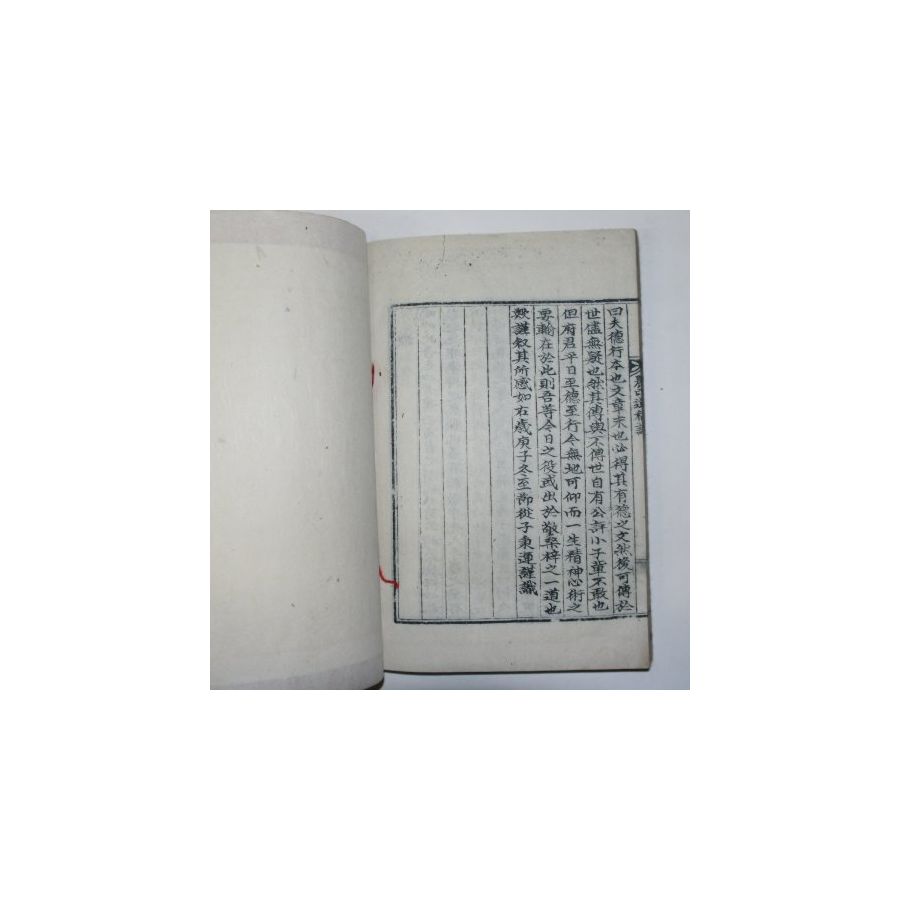 曰夫德行本也文章末也必得其有德之文然後可傳於
世儘無疑也然其傳與不傳世自有公評小子輩不敢也
但府君平日至德至行今無地可仰而一生精神心術之
要輸在於此則吾等今日之役或出於敬桑梓之一道也
歟謹敍其所感如右歲庚子冬至節從子秉運謹識
遺稿